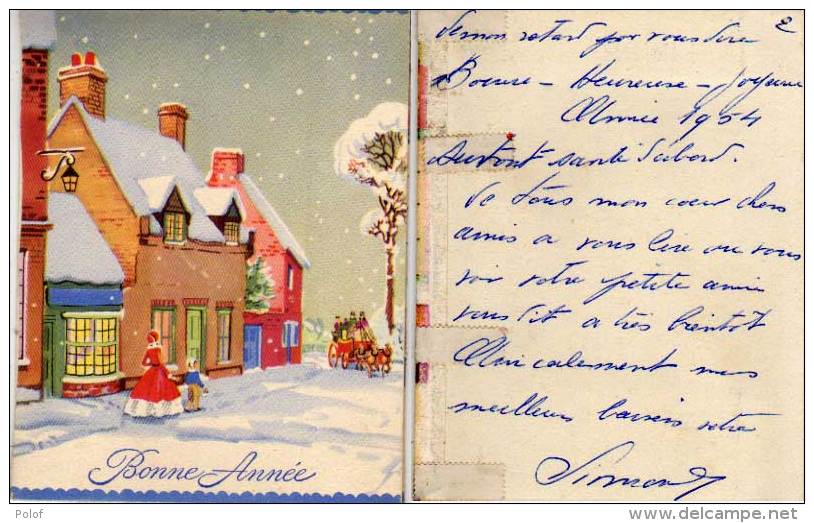 Bonne Année
2
de mon retard pour vous dire
Bonne - Heureuse - Joyeuse
Année 1954
Surtout santé d'abord.
De tous mon cœur chers
amis a vous lire ou vous
voir votre petite amie
vous dit a très bientôt
Amicalement mes
meilleurs baisers votre
Simone
Polof
delcampe.net